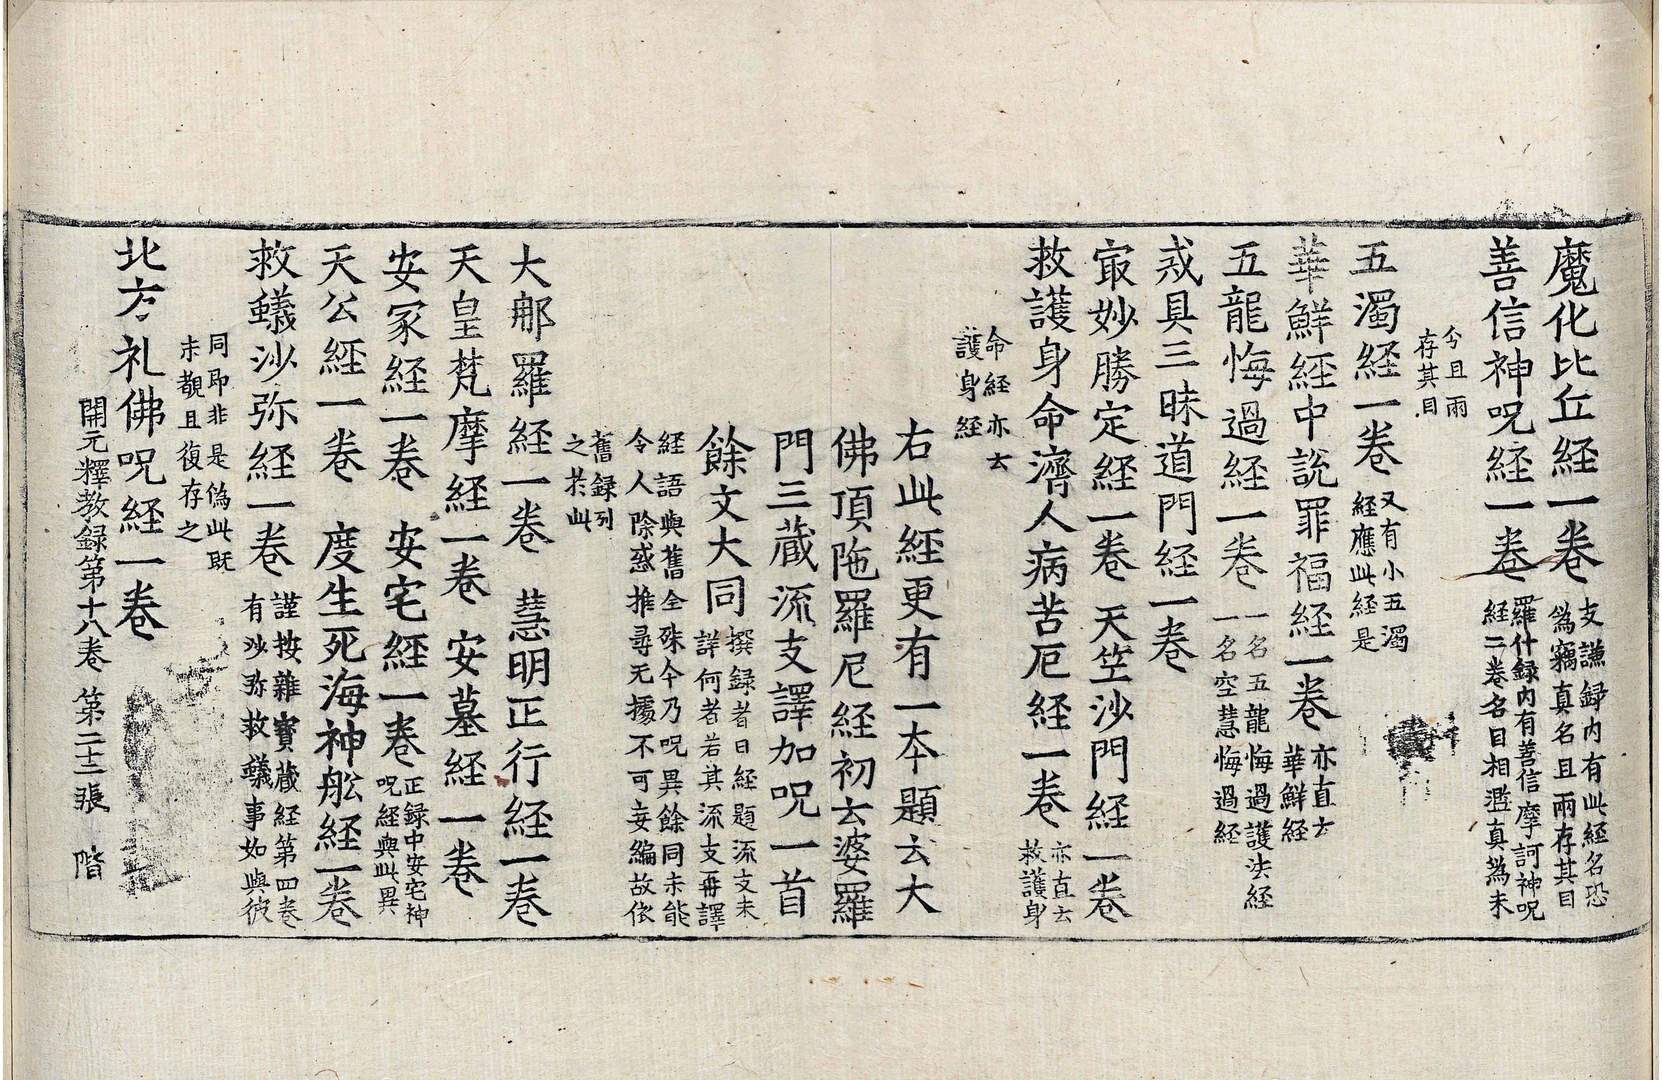 魔化比丘経一卷支謙録内有此経名恐為竊真名且兩存其目
善信神呪経一卷羅什録内有善信摩訶神呪経二卷名目相濫真為未
兮且兩存其目
五濁経一卷又有小五濁経應此経是
華鮮経中説罪福経一卷亦直云華鮮経
五龍悔過経一卷一名五龍悔過護法経一名空慧悔過経
戒具三昧道門経一卷
㝡妙勝定経一卷 天竺沙門経一卷
救護身命濟人病苦厄経一卷亦直云救護身
命経亦云護身経
右此経更有一本題云大
佛頂陁羅尼経初云婆羅
門三蔵流支譯加呪一首
餘文大同撰録者曰経題流支未詳何者若其流支再譯
経語與舊全殊今乃呪異餘同未能令人除惑推尋无據不可妄編故依
舊録列之於此
大郍羅経一卷 慧明正行経一卷
天皇梵摩経一卷 安墓経一卷
安冢経一卷 安宅経一卷正録中安宅神呪経與此異
天公経一卷 度生死海神舩経一卷
救蟻沙弥経一卷謹按雜寳蔵経第四卷有沙弥救蟻事如與彼
同即非是偽此既未覩且復存之
北方礼佛呪経一卷
開元釋教録第十八卷 第二十二張 階